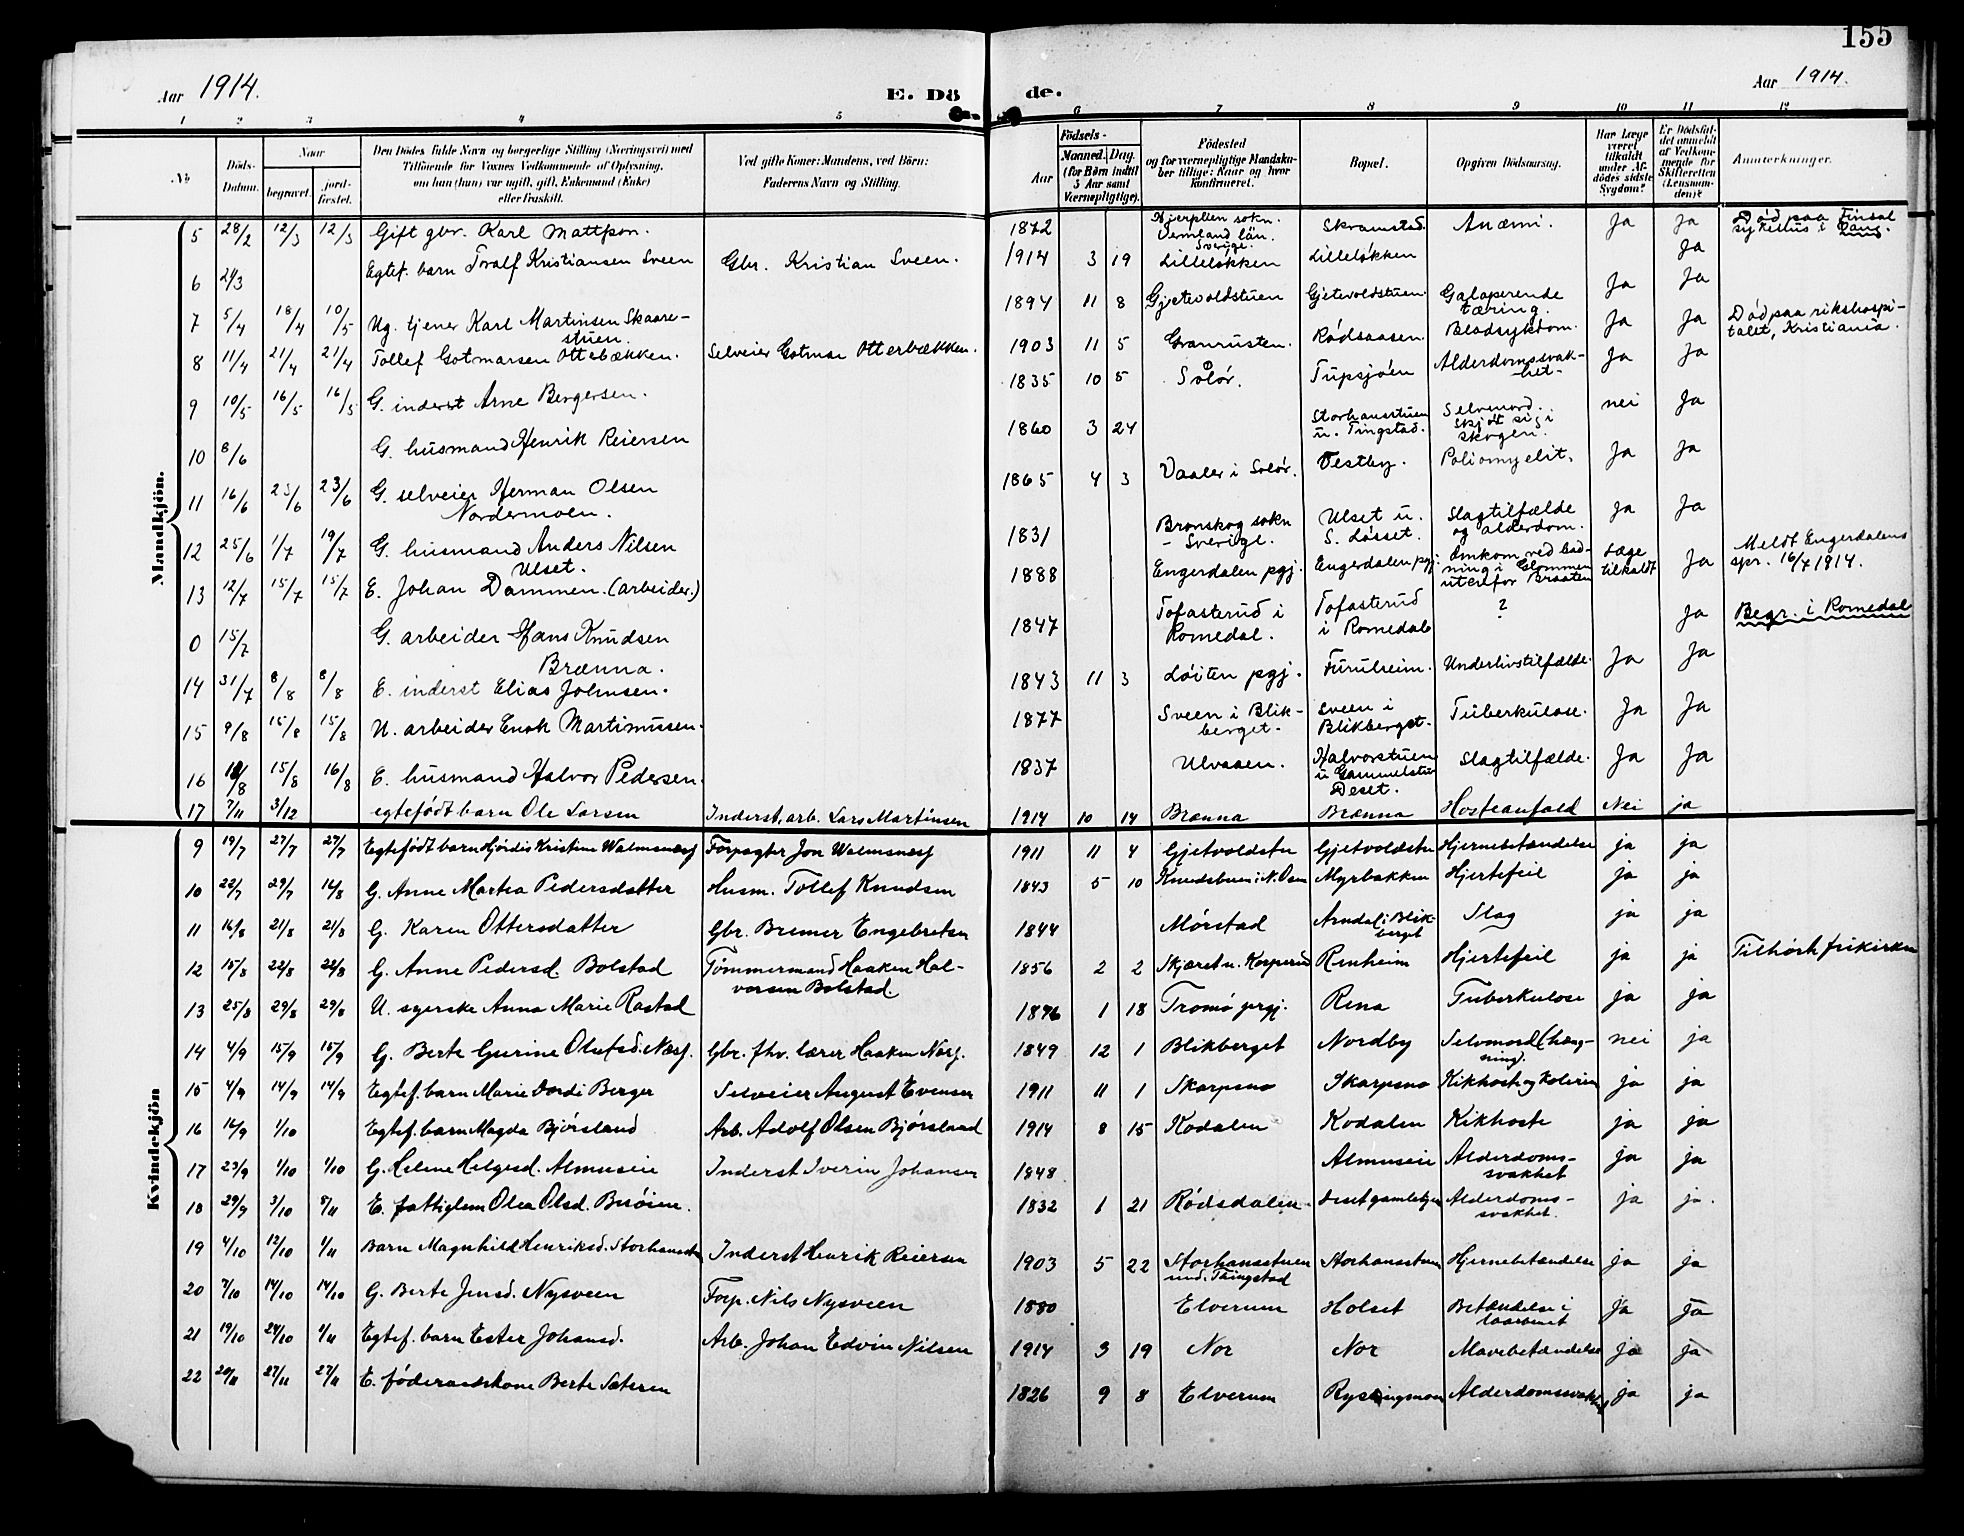 155
Aar 1914.
E. Dö
de.
Aar 1914.
1 2 3 4 5 6 7 8 9 10 11 12
№
Döds-Datum.
Naar
begravet.
jord-fæstet.
Den Dödes fulde Navn og borgerlige Stilling (Næringsvei) med
Tilföiende for Voxnes Vedkommende af Oplysning,
om han (hun) var ugift, gift, Enkemand (Enke)
eller fraskilt.
Ved gifte Koner: Mandens, ved Börn:
Faderens Navn og Stilling.
Födsels-
Aar
Maaned. Dag.
(for Børn indtil
5 Aar samt
Værnepligtige).
Födested
og for værnepligtige Mandska-
ber tillige: Naar og hvor
konfirmeret.
Bopæl.
Opgiven Dödsaarsag.
Har Læge
været
tilkaldt
under Af-
dödes sidste
Sygdom?
Er Dödsfal-
det anmeldt
af Vedkom-
mende for
Skifteretten
(Lensman-
den)?
Anmerkninger.
Mandkjön.
5 28/2 12/3 12/3 Gift gbr. Karl Mattson. 1872 sokn. Vermland län. Sverige. Skramstad. Anæmi. Ja Ja Død paa Tinsal sykehus i Vang.
6 21/3 Egtef. barn Tralf Kristiansen Sveen Gbr. Kristian Sveen. 1914 3 19 Lilleløkken Lilleløkken Ja
7 5/4 18/4 10/5 Ug. tjener Karl Martinsen Skaare-
stuen. 1894 11 8 Gjetevoldstuen Gjetevoldstuen. Galoperende tæring. Ja Ja
8 11/4 21/4 21/4 Tollef Gotmarsen Ottebækken. Selveier Gotmar Otterbækken. 1903 11 5 Granrusten. Rødsaasen. Blodsykdom. Ja Ja Død paa rikshospi-
talet, Kristiania.
9 10/5 16/5 16/5 G. inderst Arne Bergersen. 1835 10 5 Solør. Tupsjøen Alderdomssvak-
het. Ja Ja
10 8/6 G. husmand Henrik Reiersen 1860 3 24 Storhansstuen u. Tingstad. Selvmord. Skjøt sig i skogen. nei Ja
11 16/6 23/6 23/6 G. selveier Herman Olsen
Nordermoen. 1865 4 3 Vaaler i Solør. Vestby. Poliomyelit. Ja Ja
12 25/6 1/7 19/7 G. husmand Anders Nilsen
Ulset. 1831 Brunskog sokn - Sverige. Ulset u. S. Løsset. Slagtilfælde og alderdom. Ja Ja
13 12/7 15/7 15/7 E. Johan Dammen. (arbeider.) 1888 Engerdalen pgj. Engerdalen pgj. Omkom ved bad-
ning i Glommen utenfor Braaten Læge tilkaldt Ja Meldt Engerdalens spr. 16/7 1914.
0 15/7 G. arbeider Hans Knudsen
Brænna. 1847 Tofasterud i Romedal. Tofasterud i Romedal ? Ja Begr. i Romedal
14 31/7 8/8 8/8 E. inderst Elias Johnsen. 1843 11 3 Løiten pgj. Furulheim. Underlivstilfælde. Ja Ja
15 9/8 15/8 15/8 U. arbeider Enok Martinussen. 1877 Sveen i Blik-
berget. Sveen i Blikberget. Tuberkulose. Ja Ja
16 10/8 15/8 16/8 E. husmand Halvor Pedersen. 1837 Ulvaaen. Halvorstuen u. Gammelstu Deset. Slagtilfælde. Ja Ja
17 7/11 3/12 egtefødt barn Ole Larsen Inderst, arb. Lars Martinsen 1914 10 14 Brænna Brænna Hosteanfald Nei ja
Kvindekjön
9 19/7 27/7 27/7 Egtefødt barn Hjørdis Kristine Walmsnæss Forpagter Jon Walmsnæss 1911 11 4 Gjetvoldstu Gjetvoldstu Hjernebetændelse ja ja
10 22/7 29/7 16/8 G. Anne Martea Pedersdatter Husm. Tollef Knudsen 1843 5 10 Knudsbuen i N. Osen Myrbakken Hjertefeil ja ja
11 16/8 21/8 21/8 G. Karen Ottersdatter Gbr. Bremer Engebretsen 1844 Mørstad Arndal i Blik-
berget Slag ja ja
12 15/8 22/8 22/8 G. Anne Pedersd. Bolstad Tømmermand Haaken Hal-
vorsen Bolstad. 1856 2 2 Skjæret u. Kasperud Renheim Hjertefeil ja ja Tilhørte frikirken
13 25/8 29/8 29/8 U. syerske Anna Marie Rastad 1896 1 18 Tromø prgj. Rena Tuberkulose ja ja
14 4/9 15/9 15/9 G. Berte Gurine Olufsd. Næss. Gbr. fhv. lærer Haaken Næss. 1849 12 1 Blikberget Nordby Selvmord (hæng-
ning). nei ja
15 4/9 14/9 14/9 Egtef. barn Marie Dordi Berger Selveier August Evensen 1911 11 1 Skarpsno Skarpsno Kikhoste og Kolerin ja ja
16 16/9 1/10 Egtef. barn Magda Bjørsland Arb. Adolf Olsen Bjørsland 1914 8 15 Kodalen Kodalen Kikhoste ja ja
17 23/9 1/10 1/10 G. Helene Helgesd. Almuseie Inderst Iverin Johansen 1848 Almuseie Alderdoms-
svakhet ja ja
18 29/9 3/10 8/11 E. fattiglem Olea Olsd. Berøien. 1832 1 21 Rødsdalen Deset gamlehjem Alderdoms-
svakhet. ja ja.
19 4/10 12/10 1/11 Barn Magnhild Henriksd. Storhansstuen Inderst Henrik Reiersen 1903 5 22 Storhansstuen und. Thingstad Storhansstuen Hjernebetændelse ja ja
20 7/10 14/10 14/10 G. Berte Jensd. Nysveen Forp. Nils Nysveen 1880 Elverum Holset Betændelse i laarbenet ja ja
21 19/10 24/10 1/11 Egtef. barn Ester Johansd. Arb. Johan Edvin Nilsen 1914 3 19 Nor Nor Mavebetændelse ja ja
22 20/11 27/11 27/11 E. føderaadskone Berte Sæteren 1826 9 8 Elverum Rysningmoen Alderdomssvakhet ja ja